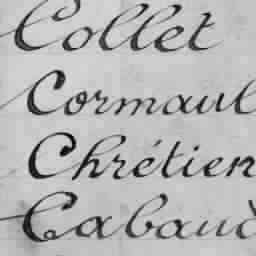 Collet
Cormaul
Chrétien
Cabaud